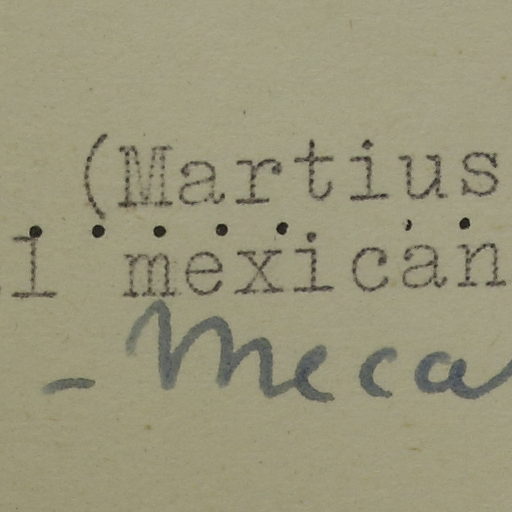 (Martius
l mexican
- Meca